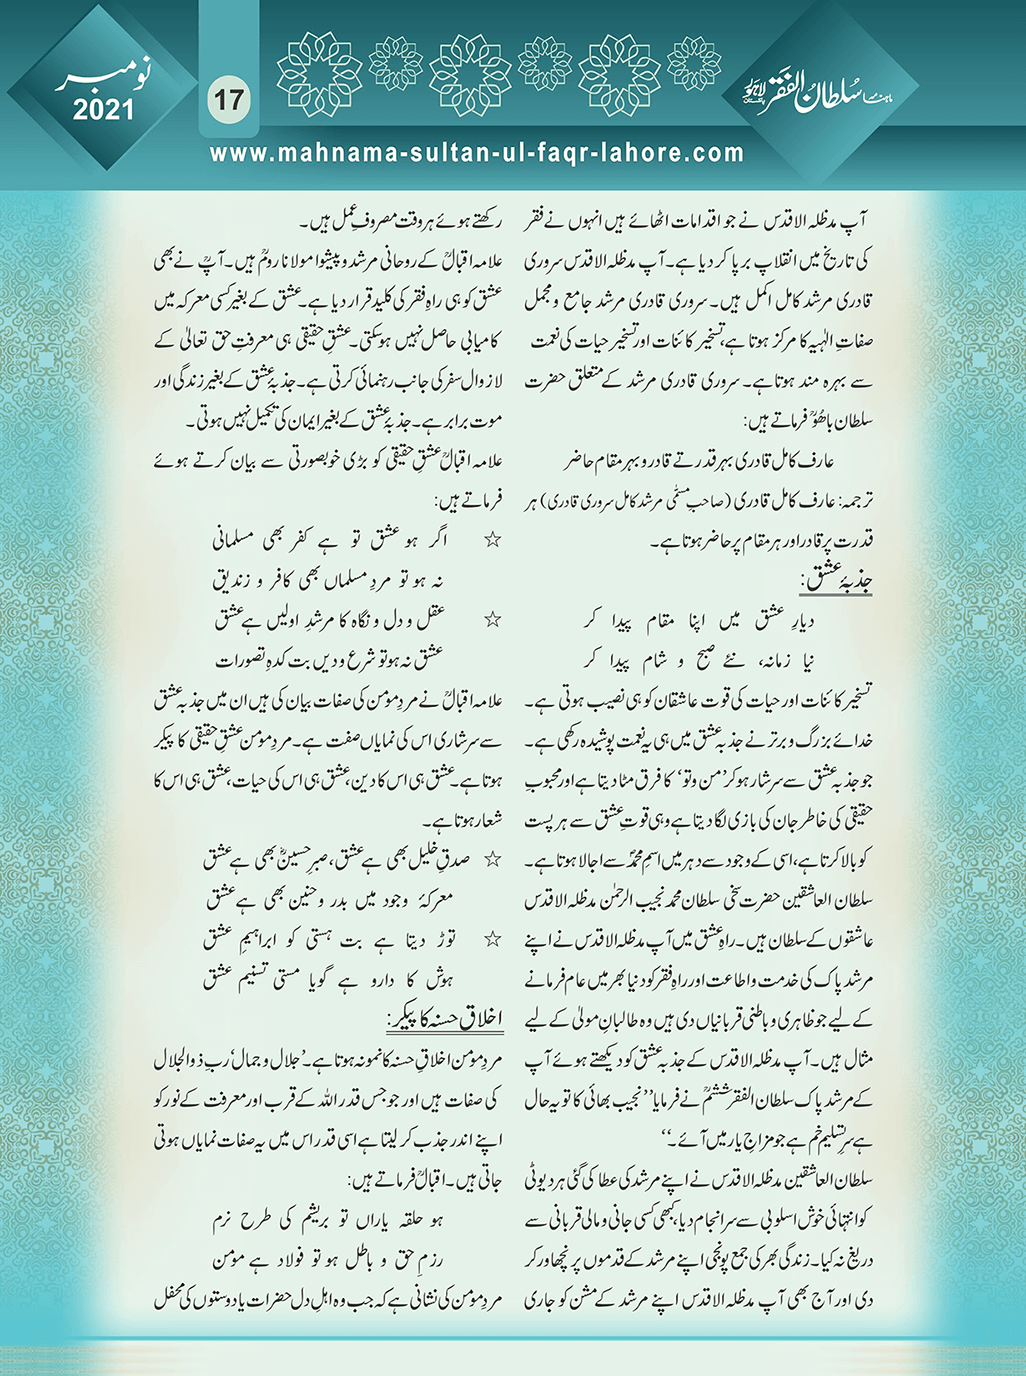 نومبر
2021
17
ماہنامہ سلطان الفقر لاہور
پاکستان
www.mahnama-sultan-ul-faqr-lahore.com
آپ مدظلہ الاقدس نے جو اقدامات اٹھائے ہیں انہوں نے فقر
کی تاریخ میں انقلاب برپا کر دیا ہے۔ آپ مدظلہ الاقدس سروری
قادری مرشد کامل اکمل ہیں۔ سروری قادری مرشد جامع و مجمل
صفاتِ الٰہیہ کا مرکز ہوتا ہے، تسخیر کائنات اور تسخیر حیات کی نعمت
سے بہرہ مند ہوتا ہے۔ سروری قادری مرشد کے متعلق حضرت
سلطان باھُوؒ فرماتے ہیں:
عارف کامل قادری بہر قدرتے قادر و بہر مقام حاضر
ترجمہ: عارف کامل قادری (صاحب مسمّٰی مرشد کامل سروری قادری) ہر
قدرت پر قادر اور ہر مقام پر حاضر ہوتا ہے۔
جذبۂ عشق:
دیارِ عشق میں اپنا مقام پیدا کر
نیا زمانہ، نئے صبح و شام پیدا کر
تسخیر کائنات اور حیات کی قوت عاشقان کو ہی نصیب ہوتی ہے۔
خدائے بزرگ و برتر نے جذبہ عشق میں ہی یہ نعمت پوشیدہ رکھی ہے۔
جو جذبہ عشق سے سرشار ہو کر ’من و تو‘ کا فرق مٹا دیتا ہے اور محبوبِ
حقیقی کی خاطر جان کی بازی لگا دیتا ہے وہی قوتِ عشق سے ہر پست
کو بالا کرتا ہے، اسی کے وجود سے دہر میں اسمِ محمدؐ سے اجالا ہوتا ہے۔
سلطان العاشقین حضرت سخی سلطان محمد نجیب الرحمٰن مدظلہ الاقدس
عاشقوں کے سلطان ہیں۔ راہِ عشق میں آپ مدظلہ الاقدس نے اپنے
مرشد پاک کی خدمت و اطاعت اور راہِ فقر کو دنیا بھر میں عام فرمانے
کے لیے جو ظاہری و باطنی قربانیاں دی ہیں وہ طالبانِ مولیٰ کے لیے
مثال ہیں۔ آپ مدظلہ الاقدس کے جذبہ عشق کو دیکھتے ہوئے آپ
کے مرشد پاک سلطان الفقر ششمؒ نے فرمایا ’’نجیب بھائی کا تو یہ حال
ہے سرِ تسلیم خم ہے جو مزاجِ یار میں آئے۔‘‘
سلطان العاشقین مدظلہ الاقدس نے اپنے مرشد کی عطا کی گئی ہر ڈیوٹی
کو انتہائی خوش اسلوبی سے سرانجام دیا، کبھی کسی جانی و مالی قربانی سے
دریغ نہ کیا۔ زندگی بھر کی جمع پونجی اپنے مرشد کے قدموں پر نچھاور کر
دی اور آج بھی آپ مدظلہ الاقدس اپنے مرشد کے مشن کو جاری
رکھتے ہوئے ہر وقت مصروفِ عمل ہیں۔
علامہ اقبالؒ کے روحانی مرشد و پیشوا مولانا رومؒ ہیں۔ آپؒ نے بھی
عشق کو ہی راہِ فقر کی کلید قرار دیا ہے۔ عشق کے بغیر کسی معرکہ میں
کامیابی حاصل نہیں ہوسکتی۔ عشقِ حقیقی ہی معرفتِ حق تعالیٰ کے
لازوال سفر کی جانب رہنمائی کرتی ہے۔ جذبۂ عشق کے بغیر زندگی اور
موت برابر ہے۔ جذبۂ عشق کے بغیر ایمان کی تکمیل نہیں ہوتی۔
علامہ اقبالؒ عشقِ حقیقی کو بڑی خوبصورتی سے بیان کرتے ہوئے
فرماتے ہیں:
☆ اگر ہو عشق تو ہے کفر بھی مسلمانی
نہ ہو تو مردِ مسلماں بھی کافر و زندیق
☆ عقل و دل و نگاہ کا مرشدِ اولیں ہے عشق
عشق نہ ہو تو شرع و دیں بت کدہِ تصورات
علامہ اقبالؒ نے مردِ مومن کی صفات بیان کی ہیں ان میں جذبہ عشق
سے سرشاری اس کی نمایاں صفت ہے۔ مردِ مومن عشقِ حقیقی کا پیکر
ہوتا ہے۔ عشق ہی اس کا دین، عشق ہی اس کی حیات، عشق ہی اس کا
شعار ہوتا ہے۔
☆ صدقِ خلیل بھی ہے عشق، صبرِ حسینؓ بھی ہے عشق
معرکۂ وجود میں بدر و حنین بھی ہے عشق
☆ توڑ دیتا ہے بت ہستی کو ابراہیمِ عشق
ہوش کا دارو ہے گویا مستی تسنیم عشق
اخلاقِ حسنہ کا پیکر:
مردِ مومن اخلاقِ حسنہ کا نمونہ ہوتا ہے۔ ’جلال و جمال‘ ربِ ذوالجلال
کی صفات ہیں اور جو جس قدر اللہ کے قرب اور معرفت کے نور کو
اپنے اندر جذب کر لیتا ہے اسی قدر اس میں یہ صفات نمایاں ہوتی
جاتی ہیں۔ اقبالؒ فرماتے ہیں:
ہو حلقہ یاراں تو بریشم کی طرح نرم
رزمِ حق و باطل ہو تو فولاد ہے مومن
مردِ مومن کی نشانی ہے کہ جب وہ اہلِ دل حضرات یا دوستوں کی محفل